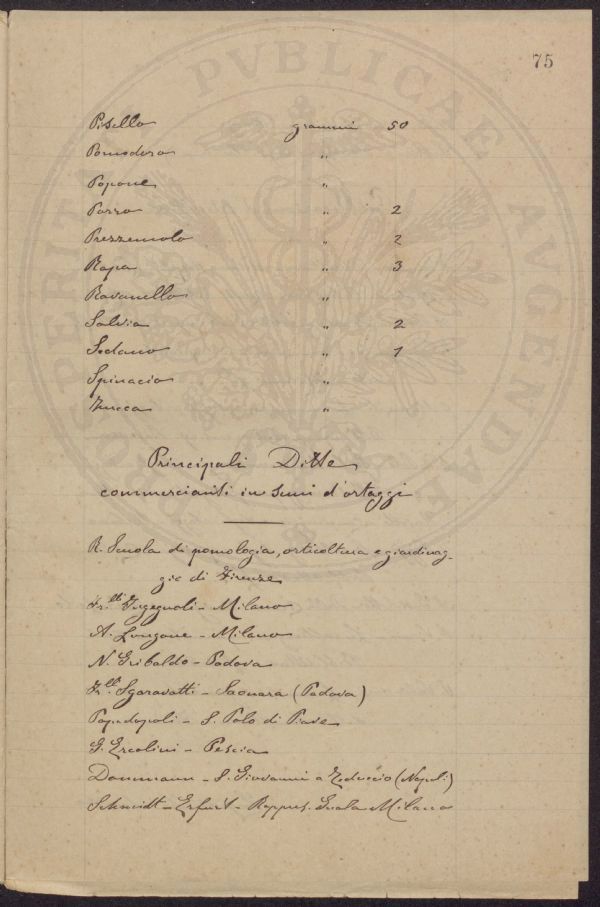 75
PVBLICAE
Pisello grammi 50
Pomodoro "
Popone "
Porro " 2
Prezzemolo " 2
Rapa " 3
Ravanello "
Salvia " 2
Sedano " 1
Spinacio "
Zucca "
Principali Ditte
commercianti in semi d'ortaggi
R. Scuola di pomologia, orticoltura e giardinag-
gio di Firenze
Fr.lli Ingegnoli - Milano
A. Longone - Milano
N. Gribaldo - Padova
F.lli Sgaravatti - Saonara (Padova)
Papadopoli - S. Polo di Piave
G. Ercolini - Pescia
Dammann - S. Giovanni a Teduccio (Napoli)
Schmidt - Erfurt - Rappres. Milano